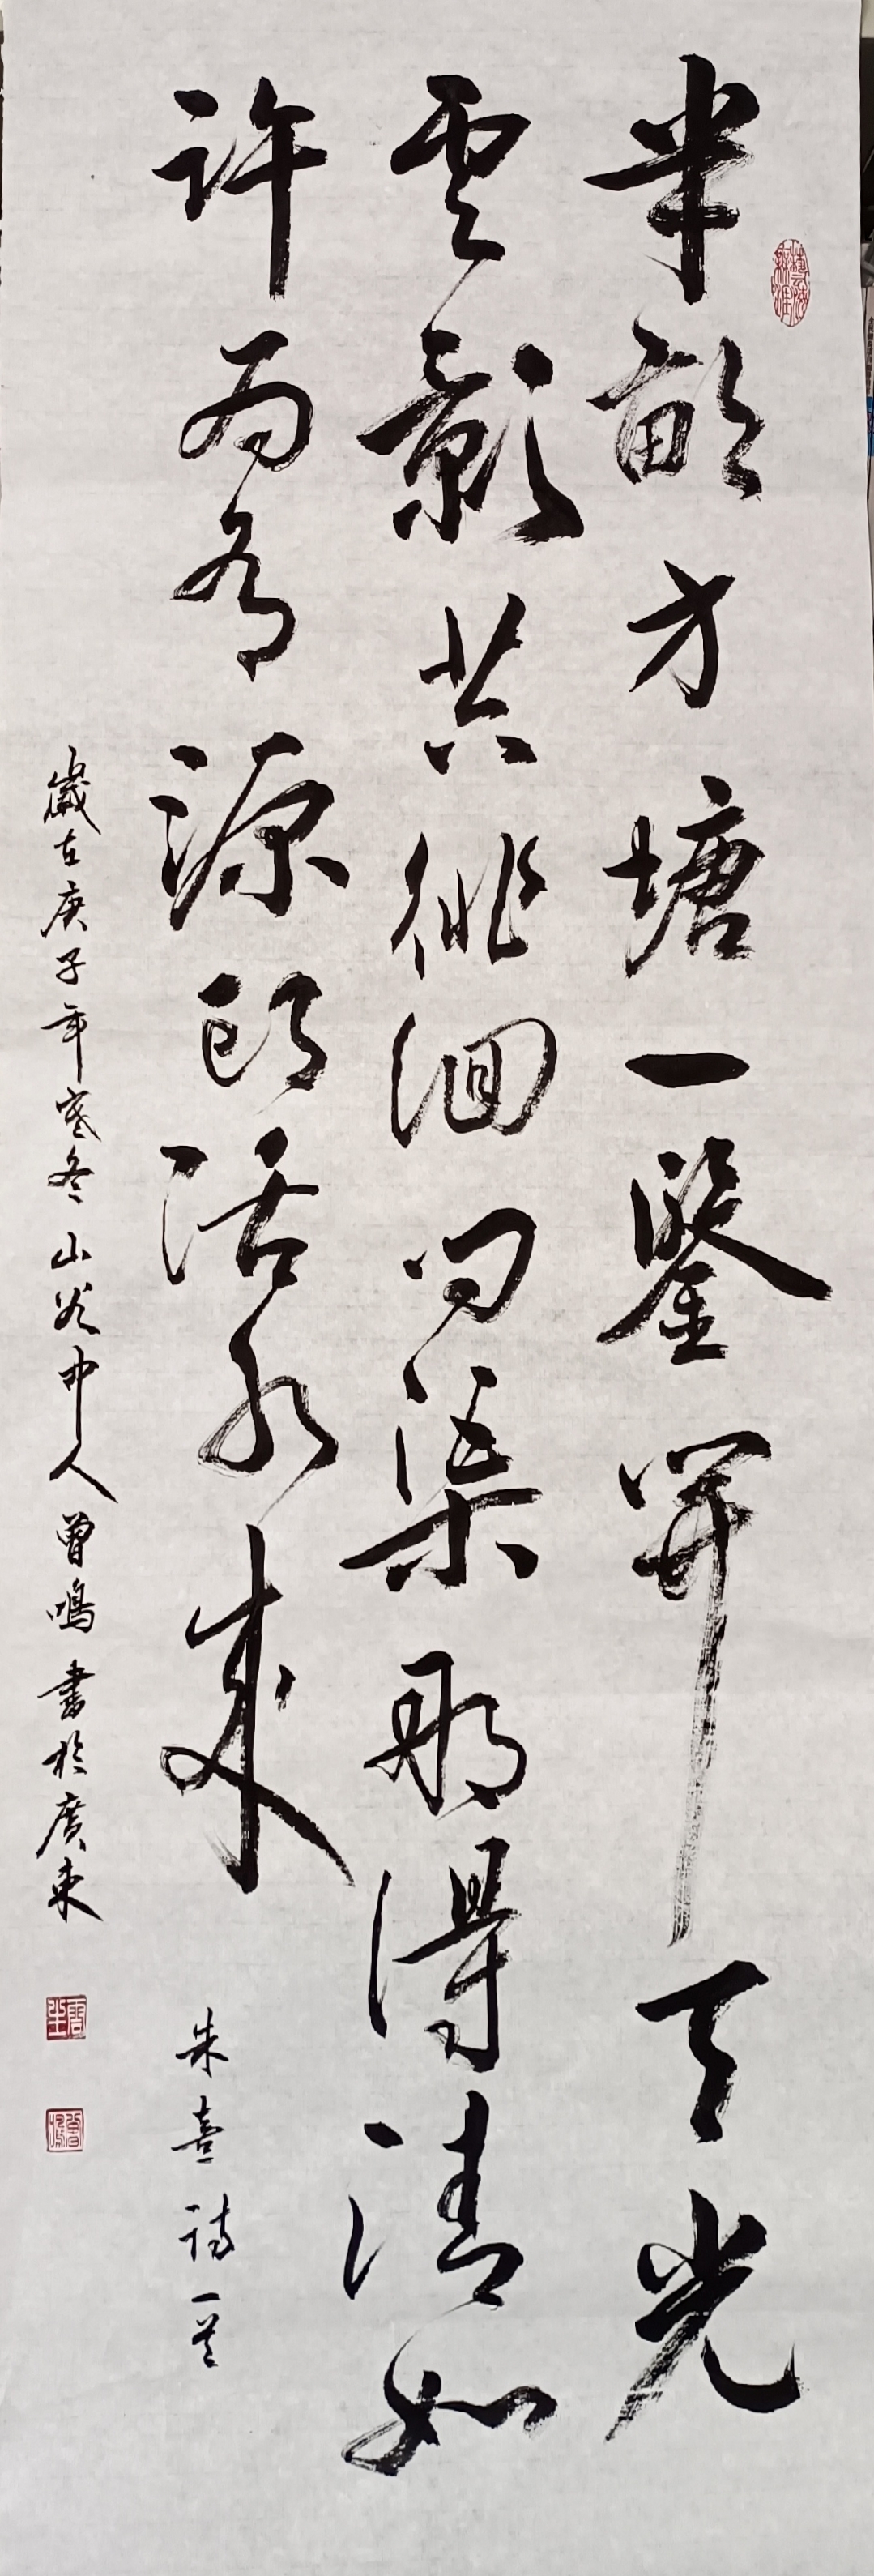 半畝方塘一鑒開天光
雲影共徘徊問渠那得清如
許為有源頭活水來
朱熹詩一首
歲在庚子年寒冬山谷中人曾鳴書於廣東